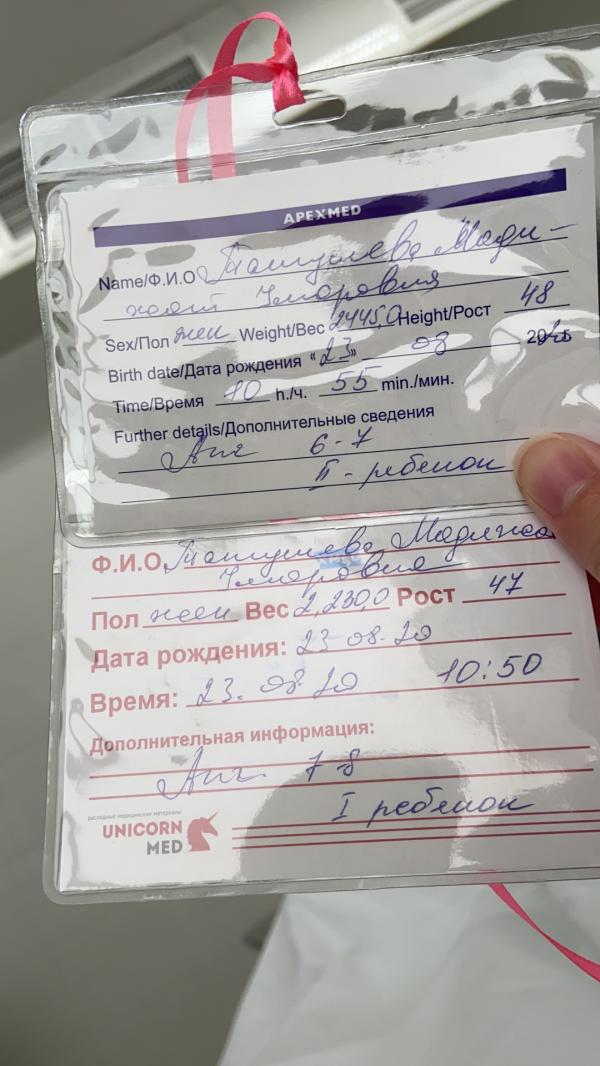 APEXMED
Name/Ф.И.О
Умаровна
Sex/Пол жен Weight/Вес 2445,0 Height/Рост 48
Birth date/Дата рождения «23» 08 20
Time/Время 10 h./ч. 55 min./мин.
Further details/Дополнительные сведения
Апг 6-7
II - ребенок
Ф.И.О
Умаровна
Пол жен Вес 2,230,0 Рост 47
Дата рождения: 23 08. 20
Время: 23. 08 20 10:50
Дополнительная информация:
Апг. 7-8
I ребенок
расходные медицинские материалы
UNICORN
MED